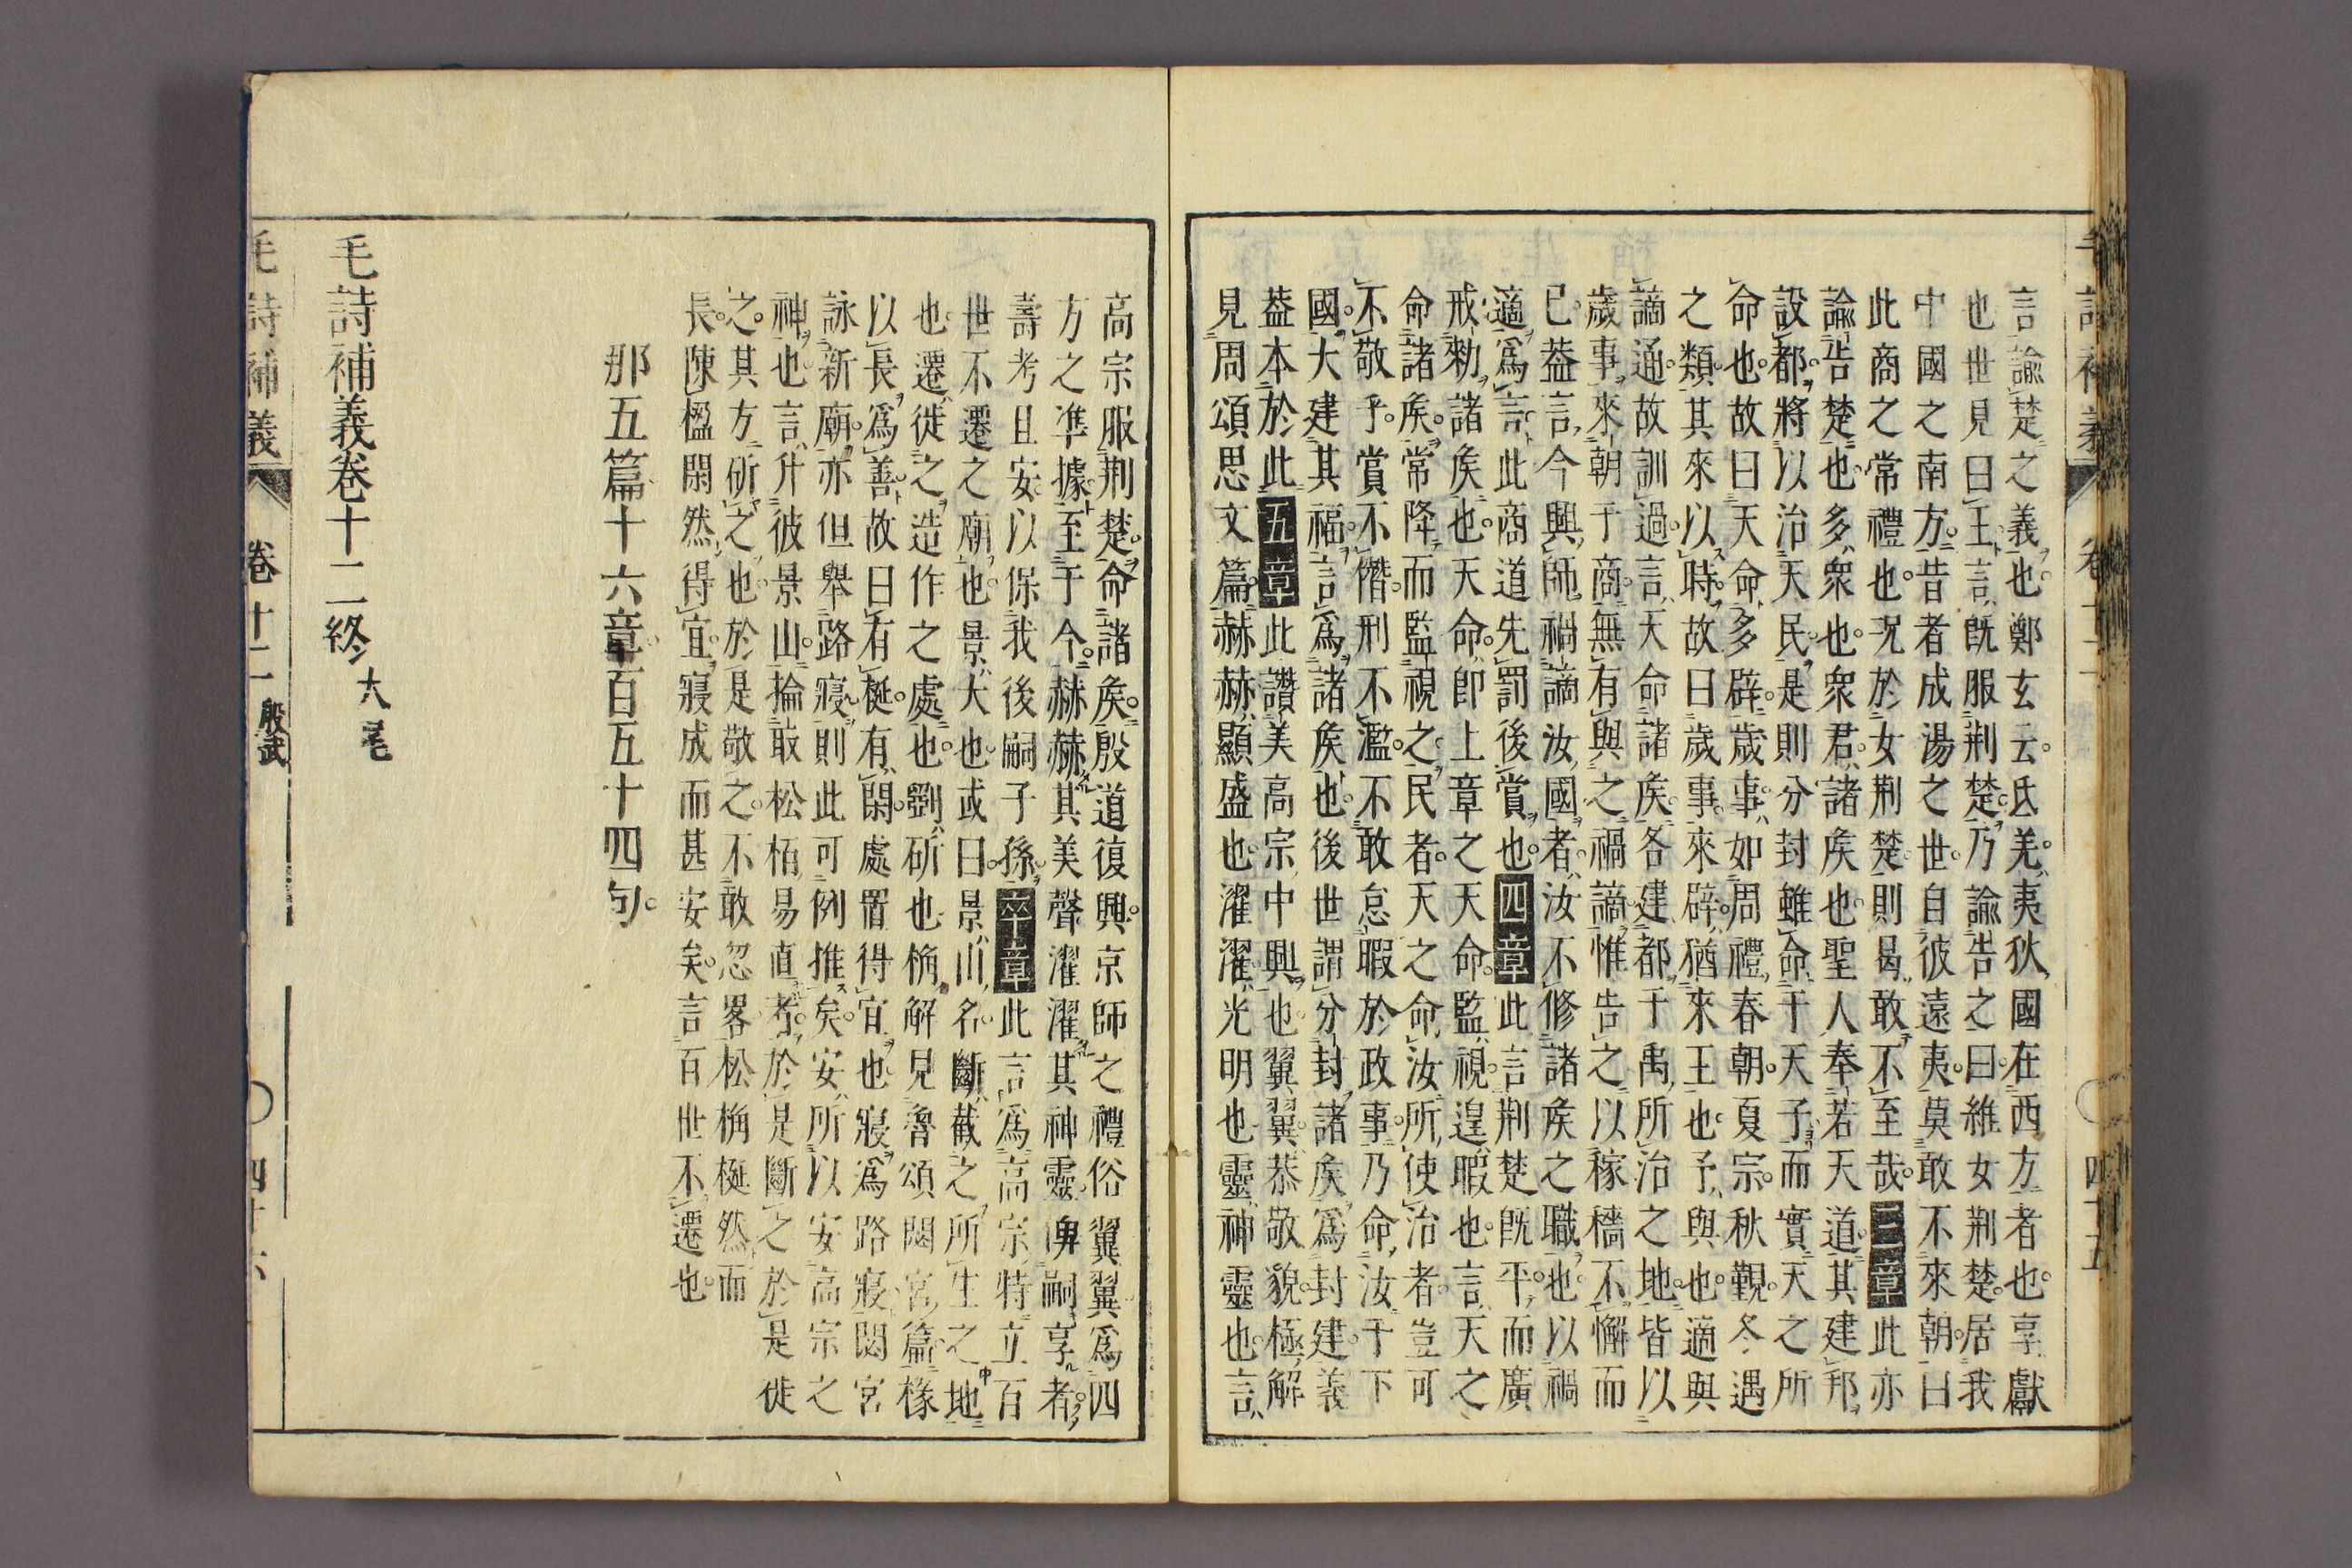 言諭楚之義也鄭玄云氐羌夷狄國在西方者也享獻
也世見曰王言既服荆楚乃諭告之曰維女荆楚居我
中國之南方昔者成湯之世自彼遠夷莫敢不來朝曰
此商之常禮也况於女荆楚則曷敢不至哉三章此亦
諭告楚也多衆也衆君諸矦也聖人奉若天道其建邦
設都將以治天民是則分封雖命于天子而實天之所
命也故曰天命多辟歲事如周禮春朝夏宗秋覲冬遇
之類其來以時故曰歲事來辟猶來王也予與也適與
謫通故訓過言天命諸矦各建都于禹所治之地皆以
歲事來朝于商無有與之禍謫惟告之以稼穡不懈而
已葢言今興師禍謫汝國者汝不修諸矦之職也以禍
適爲言此商道先罰後賞也四章此言荆楚既平而廣
戒勑諸矦也天命卽上章之天命監視遑暇也言天之
命諸矦常降而監視之民者天之命汝所使治者豈可
不敬乎賞不僭刑不濫不敢怠暇於政事乃命汝于下
國大建其福言爲諸矦也後世謂分封諸矦爲封建義
葢本於此五章此讚美高宗中興也翼翼恭敬貌極解
見周頌思文篇赫赫顯盛也濯濯光明也靈神靈也言
毛詩補義
卷十二
四十五
高宗服荆楚命諸矦殷道復興京師之禮俗翼翼爲四
方之準據至于今赫赫其美聲濯濯其神靈俾嗣享者
壽考且安以保我後嗣子孫卒章此言爲高宗特立百
世不遷之廟也景大也或曰景山名斷截之所生之地
也遷徙之造作之處也劉斫也桷解見魯頌閟宮篇椽
以長爲善故曰有梴有閑處置得宜也寢爲路寢閟宮
詠新廟亦但舉路寢則此可例推矣安所以安高宗之
神也言升彼景山掄取松栢易直者於是斷之於是徙
之其方斫之也於是敬之不敢忽畧松桷梴然而
長陳楹閑然得宜寢成而甚安矣言百世不遷也
那五篇十六章百五十四句
毛詩補義卷十二終 大尾
毛詩補義
卷十二
殷武
四十六